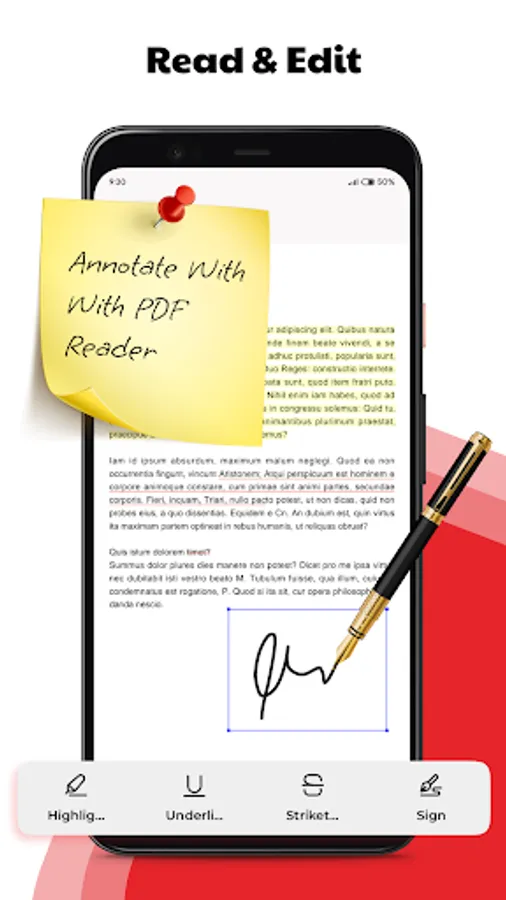 Read & Edit
9:30
50%
Annotate With
With PDF
Reader
ur adipiscing elit. Quibus natura
nde finem beate vivendi, a se
adhuc protulati, popularia sunt,
duo Reges: constructio interrete.
pata sunt, quod item fratri puto.
Nihil enim iam habes, quod ad
in congressu solemus: Quid tu,
animantibus plurimum praestat,
omus?
Iam id ipsum absurdum, maximum malum neglegi. Quod ea non
occurrentia fingunt, vincunt Aristonem; Atqui perspicuum est hominem e
corpore animoque constare, cum primae sint animi partes, secundae
corporis. Fieri, inquam, Triari, nullo pacto potest, ut non dicas, quid non
probes eius, a quo dissentias. Equidem e Cn. An dubium est, quin virtus
ita maximam partem optineat in rebus humanis, ut reliquas obruat?
Quis istum dolorem timet?
Summus dolor plures dies manere non potest? Dicet pro me ipsa virtu
nec dubitabit isti vestro beato M. Tubulum fuisse, qua illum, cuiu
condemnatus est rogatione, P. Quod si ita sit, cur opera philosoph
danda nescio.
Highlig...
Underli...
Striket...
Sign